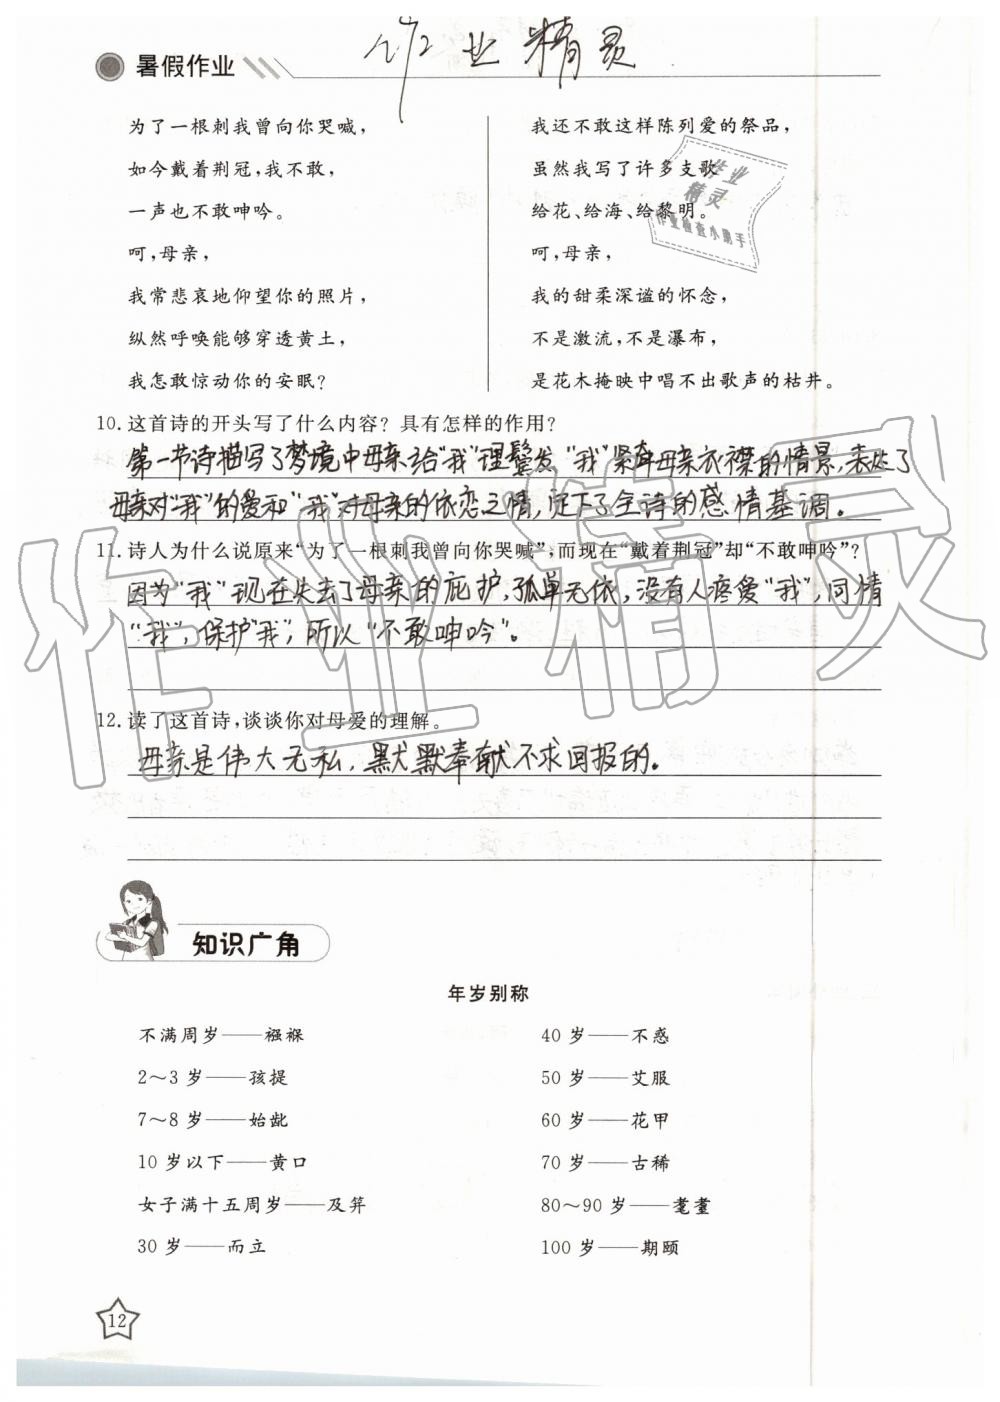 暑假作业
作业精灵
为了一根刺我曾向你哭喊，
如今戴着荆冠，我不敢，
一声也不敢呻吟。
呵，母亲，
我常悲哀地仰望你的照片，
纵然呼唤能够穿透黄土，
我怎敢惊动你的安眠？
我还不敢这样陈列爱的祭品，
虽然我写了许多支歌
给花、给海、给黎明。
呵，母亲，
我的甜柔深谧的怀念，
不是激流，不是瀑布，
是花木掩映中唱不出歌声的枯井。
作业
精灵
作业检查小助手
10. 这首诗的开头写了什么内容？具有怎样的作用？
第一节诗描写了梦境中母亲给“我”理鬓发，“我”紧牵母亲衣襟的情景，表达了
母亲对“我”的爱和“我”对母亲的依恋之情，定下了全诗的感情基调。
11. 诗人为什么说原来“为了一根刺我曾向你哭喊”，而现在“戴着荆冠”却“不敢呻吟”？
因为“我”现在失去了母亲的庇护，孤单无依，没有人疼爱“我”，同情
“我”，保护“我”，所以“不敢呻吟”。
12. 读了这首诗，谈谈你对母爱的理解。
母亲是伟大无私，默默奉献不求回报的。
作业精灵
知识广角
年岁别称
不满周岁——襁褓
2～3 岁——孩提
7～8 岁——始龀
10 岁以下——黄口
女子满十五周岁——及笄
30 岁——而立
40 岁——不惑
50 岁——艾服
60 岁——花甲
70 岁——古稀
80～90 岁——耄耋
100 岁——期颐
12